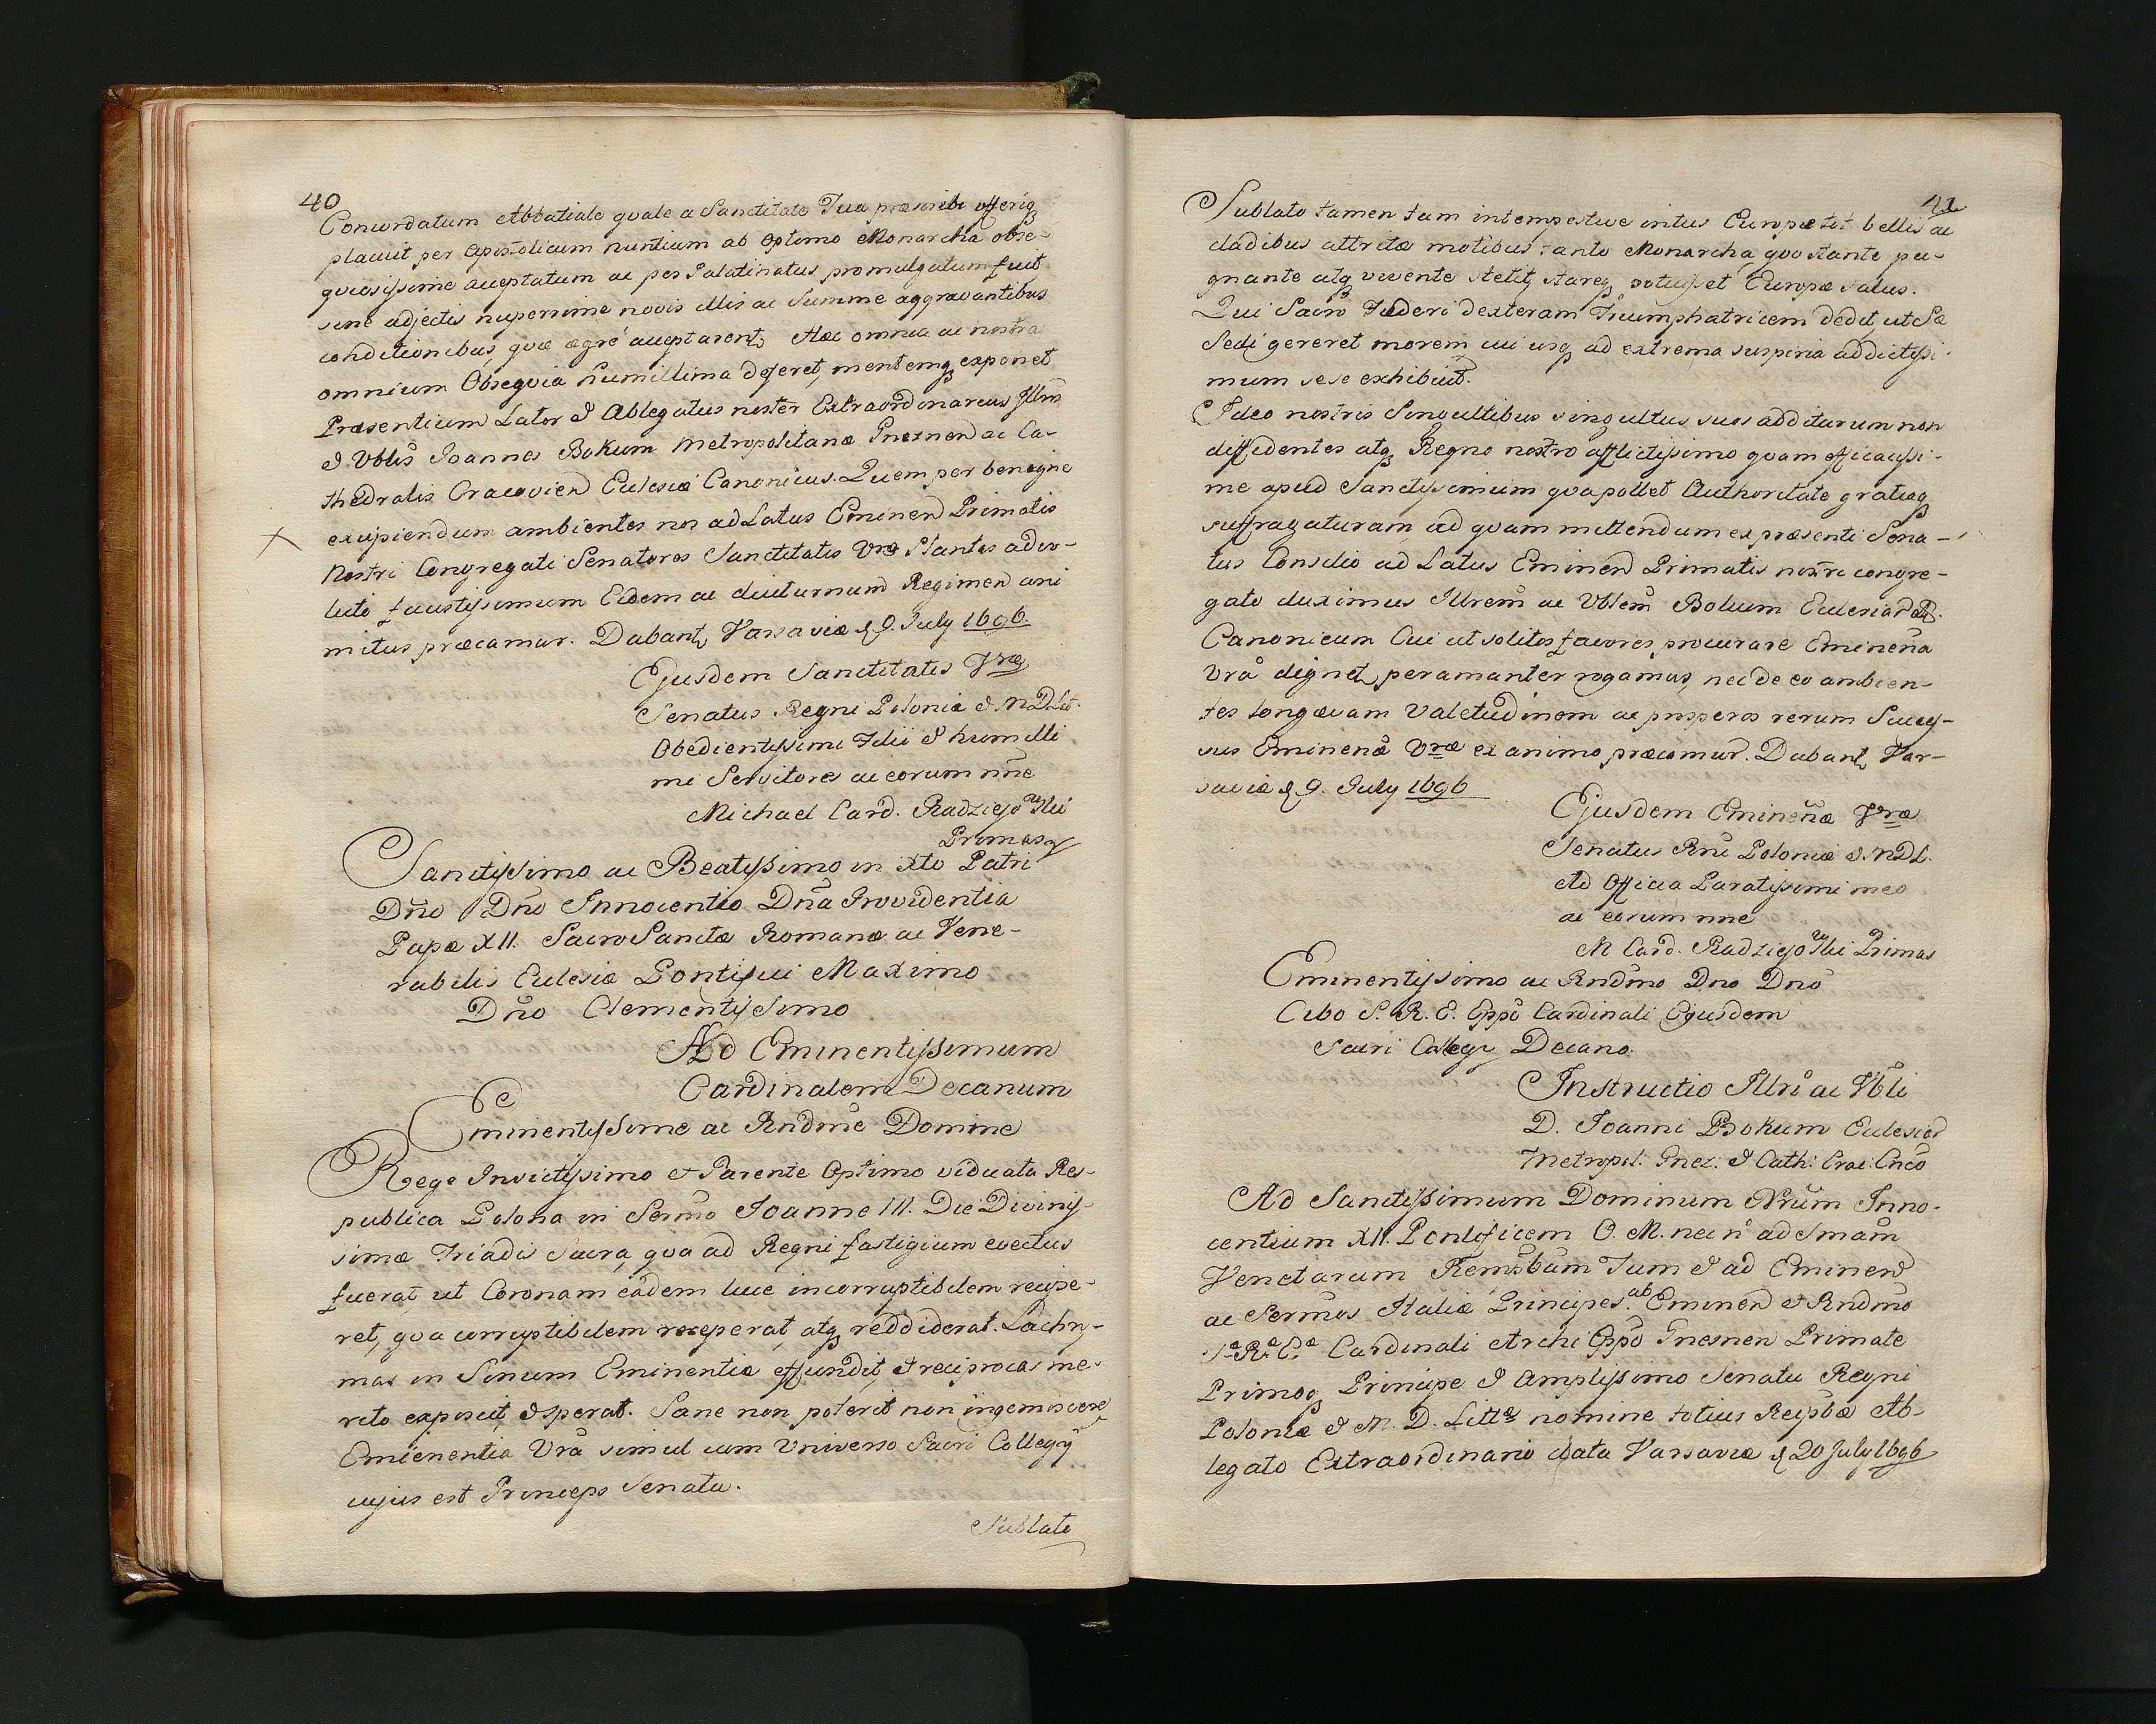 40
Concordatum Abbatiale quale a Sanctitate Tua præscribi offeriq
placuit per Apostolicum nuntium ab optimo Monarcha obse-
quiosissime acceptatum ac per Palatinatus promulgatum fuit
sine adjectis nuperrime novis illis ac Summe aggravantibus
conditionibus, quæ ægré acceptarent, Hæc omnia ac nostra
omnium Obseqvia humillima deferet, mentemq exponet
Præsentium Lator & Ablegatus noster Extraordinareus Illris
& Vblis Joannes Bokum Metropolitanæ Gnesnen ac Ca-
thedralis Cracovien Ecclesiæ Canonicus. Quem per benigne
excipiendum ambientes nos ad Latus Eminen Primatis
Nostri Congregati Senatores Sanctitatis Vræ Plantis advo-
luti faustissimum Eidem ac diuturnum Regimen ani
mitus præcamur. Dabant Varsaviæ d 9. July 1696.
Ejusdem Sanctitatis Vræ
Senatus Regni Poloniæ & M D Lit.
Obedientissimi Filii & humilli
mi Servitores ac eorum nne
Michael Card. Radziejowski
Primas
Sanctissimo ac Beatissimo in Xto Patri
Dño Dño Innocentio Dña Providentia
Papæ XII. SacroSanctæ Romanæ ac Vene-
rabilis Ecclesiæ Pontifici Maximo
Dño Clementissimo
Ad Eminentissimum
Cardinalem Decanum
Eminentissime ac Rndme Domine
Rege Invictissimo et Parente Optimo viduata Res-
publica Polona in Sermo Joanne III. Die Divinis-
simæ Triadis Sacra, qua ad Regni fastigium evectus
fuerat, ut Coronam eâdem luce incorruptibilem recipe-
ret, qua corruptibilem receperat, atq reddiderat. Lachry-
mas in Sinum Eminentiæ effundit, & reciprocas me-
rito exposcit, & sperat. Sane non poterit non ingemiscere
Emienentia Vrâ simul cum Universo Sacri Collegÿ
cujus est Princeps Senatu.
Sublato
41
Sublato tamen tam intempestive intus Europæ tot bellis ac
cladibus attritæ motibus tanto Monarcha, quo stante pu-
gnante atq vivente stetit, stareq potuisset Europæ salus.
Qui Sacro Fœderi dexteram Triumphatricem dedit, ut Sæ
Sedi gereret morem cui usq ad extrema suspiria addictissi-
mum sese exhibuit.
Ideo nostris Singultibus singultus suos additurum non
diffidentes atq Regno nostro afflictissimo quam efficacissi-
me apud Sanctissimum qua pollet Authoritate gratiaq
suffragaturam, ad quam mittendum ex præsenti Sena-
tus Consilio ad Latus Eminen Primatis nostri congre-
gato duximus Illrem ac Vblem Bokum Ecclesiar dd.
Canonicum Cui ut solitos favores procurare Eminena
Vrâ dignet, peramanter rogamus, nec de eo ambien-
tes longævam Valetudinem ac prosperos rerum Succes-
sus Eminenæ Vræ ex animo præcamur. Dabant Var-
saviæ d 9. July 1696
Ejusdem Eminenæ Vræ
Senatus Rni Poloniæ & M D L.
Ad Officia Paratissimi meo
ac eorum nne
M Card. Radziejowski Primas
Eminentissimo ac Rndmo Dno Dno
Cibo S. R. E. Eppo Cardinali Ejusdem
Sacri Collegÿ Decano.
Instructio Illri ac Vbli
D. Joanni Bokum Ecclesiar
Metropol. Gnez. & Cath. Crac: Cnco
Ad Sanctissimum Dominum Nrum Inno-
centium XII. Pontificem O. M. nec n ad Smam
Venetarum Rempbam Tum & ad Eminen
ac Sermos Italiæ Principes. ab Eminen & Rndmo
S. R. E. Cardinali Archi Eppo Gnesnen Primate
Primoq Principe & Amplissimo Senatu Regni
Poloniæ & M. D. Littæ nomine totius Reipbæ Ab-
legato Extraordinario data Varsaviæ d 20 July 1696